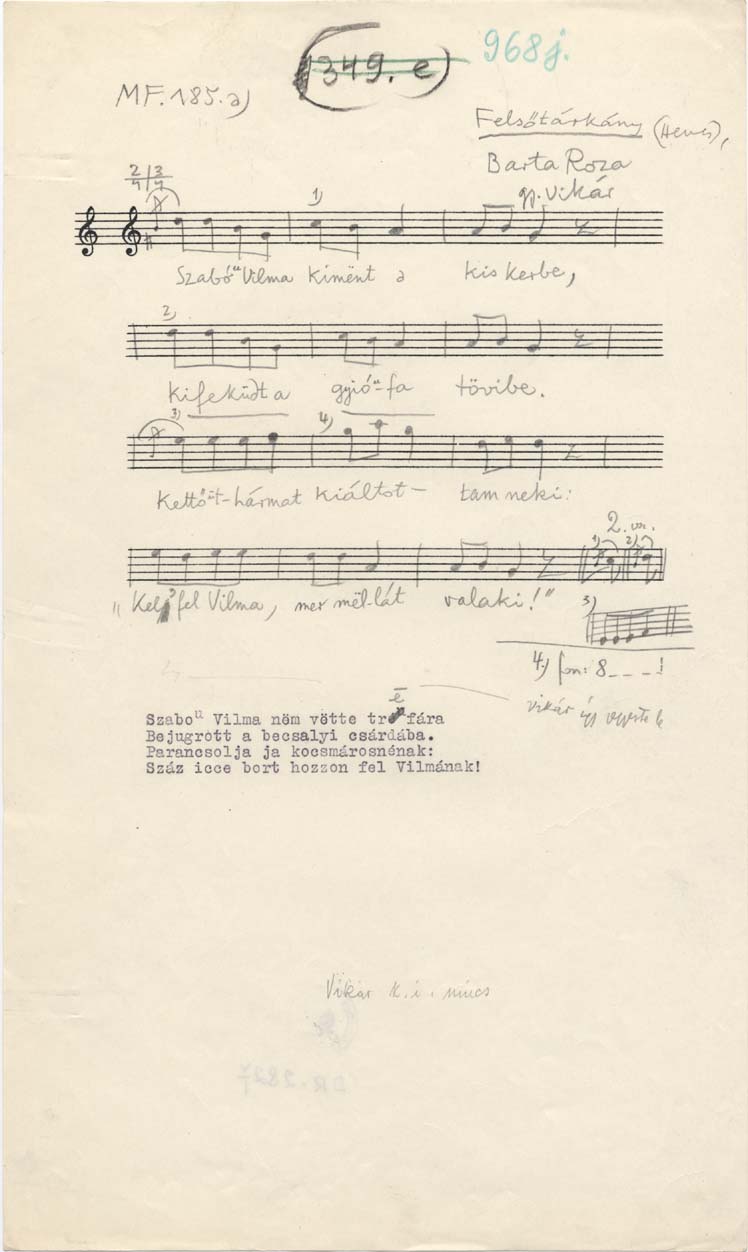 1349. e
968j.
MF. 185. a)
Felsőtárkány (Heves),
Barta Roza
gy. Vikár
2/4 | 3/4
1)
Szabóᵘ Vilma kimënt a kis kerbe,
2)
kifeküdt a gyióᵘ-fa tövibe.
3) 4)
Kettőᵘ̈t-hármat kiáltot- tam neki:
2. vsz.
1) 2)
„Kelj fel Vilma, mer mël-lát valaki!"
3)
4.) fon: 8_ _ _ !
Vikár így
é
Szaboᵘ Vilma nöm vötte tr fára
Bejugrott a becsalyi csárdába.
Parancsolja ja kocsmárosnénak:
Száz icce bort hozzon fel Vilmának!
Vikár k. i. nincs